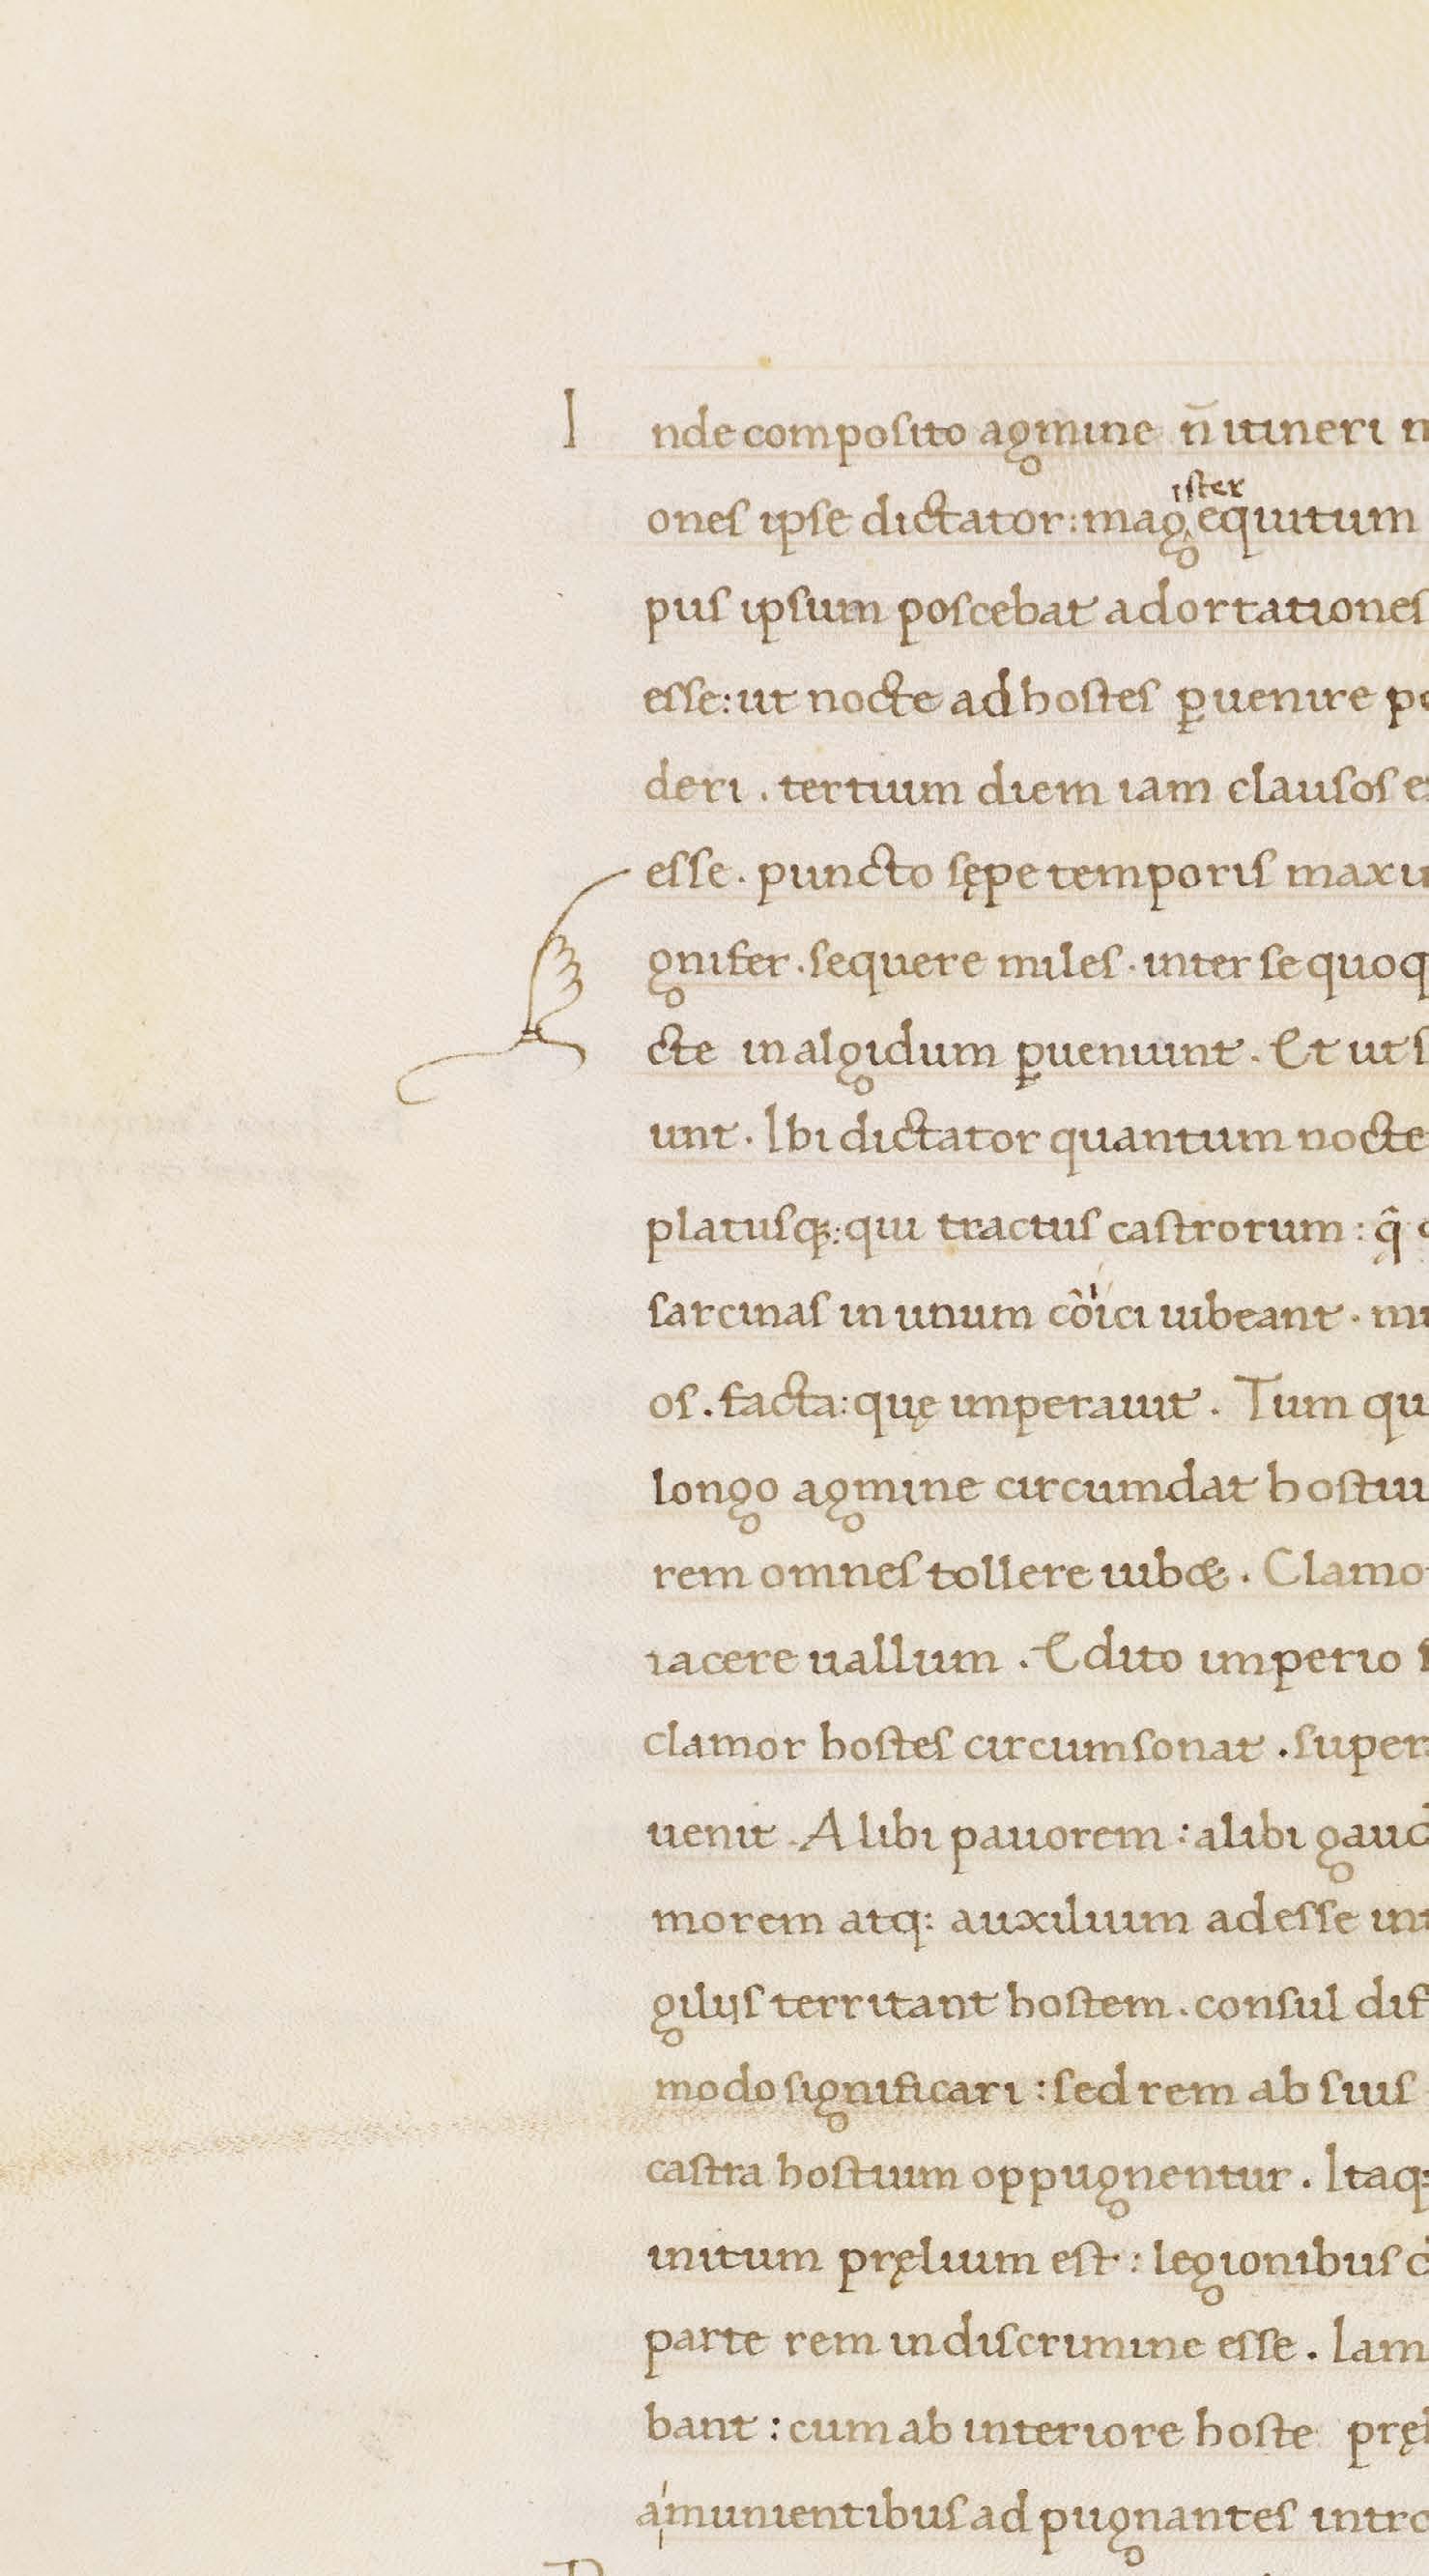 Inde composito agmine n̄ itineri
ister
ones ipse dictator: mag equitum
pus ipsum poscebat adortationes
esse: ut nocte ad hostes ꝑuenire
deri . tertium diem iam clausos
esse . puncto sępe temporis
gnifer . sequere miles . inter se
cte in algidum ꝑuenuunt . Et ut
unt . Ibi dictator quantum nocte
platusq;: qui tractus castrorum : q̂
sarcinas in unum côiici iubeant .
os . facta: quę imperauit . Tum
longo agmine circumdat
rem omnes tollere iubæ .
iacere uallum . Edito imperio
clamor hostes circumsonat .
uenit . Alibi pauorem : alibi
morem atq: auxilium adesse
gilijs territant hostem . consul
modo significari : sed rem ab suis
castra hostium oppugnentur . Itaq:
initum pręlium est : legionibus
parte rem in discrimine esse . Iam
bant : cum ab interiore hoste
amunientibus ad pugnantes